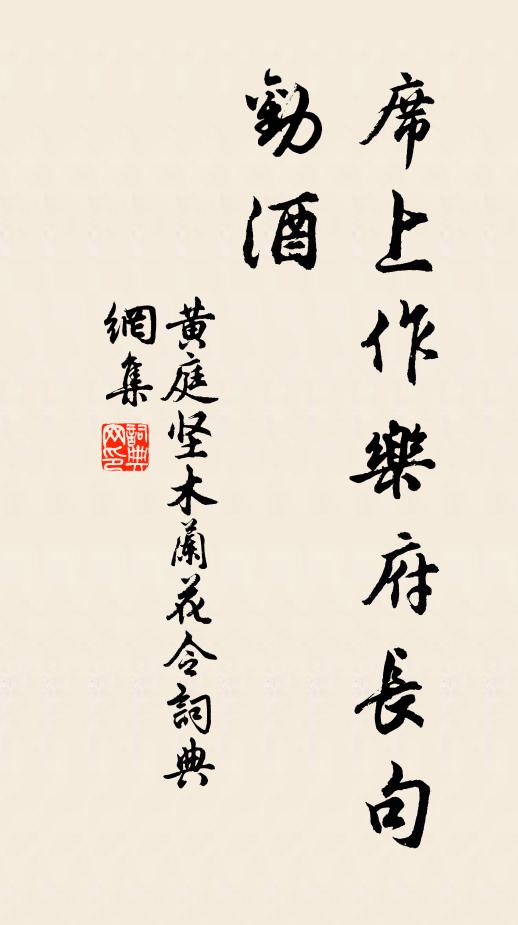 席上作樂府長句
勸酒
黄庭坚木蘭花令詞典
網集
詞典
网印